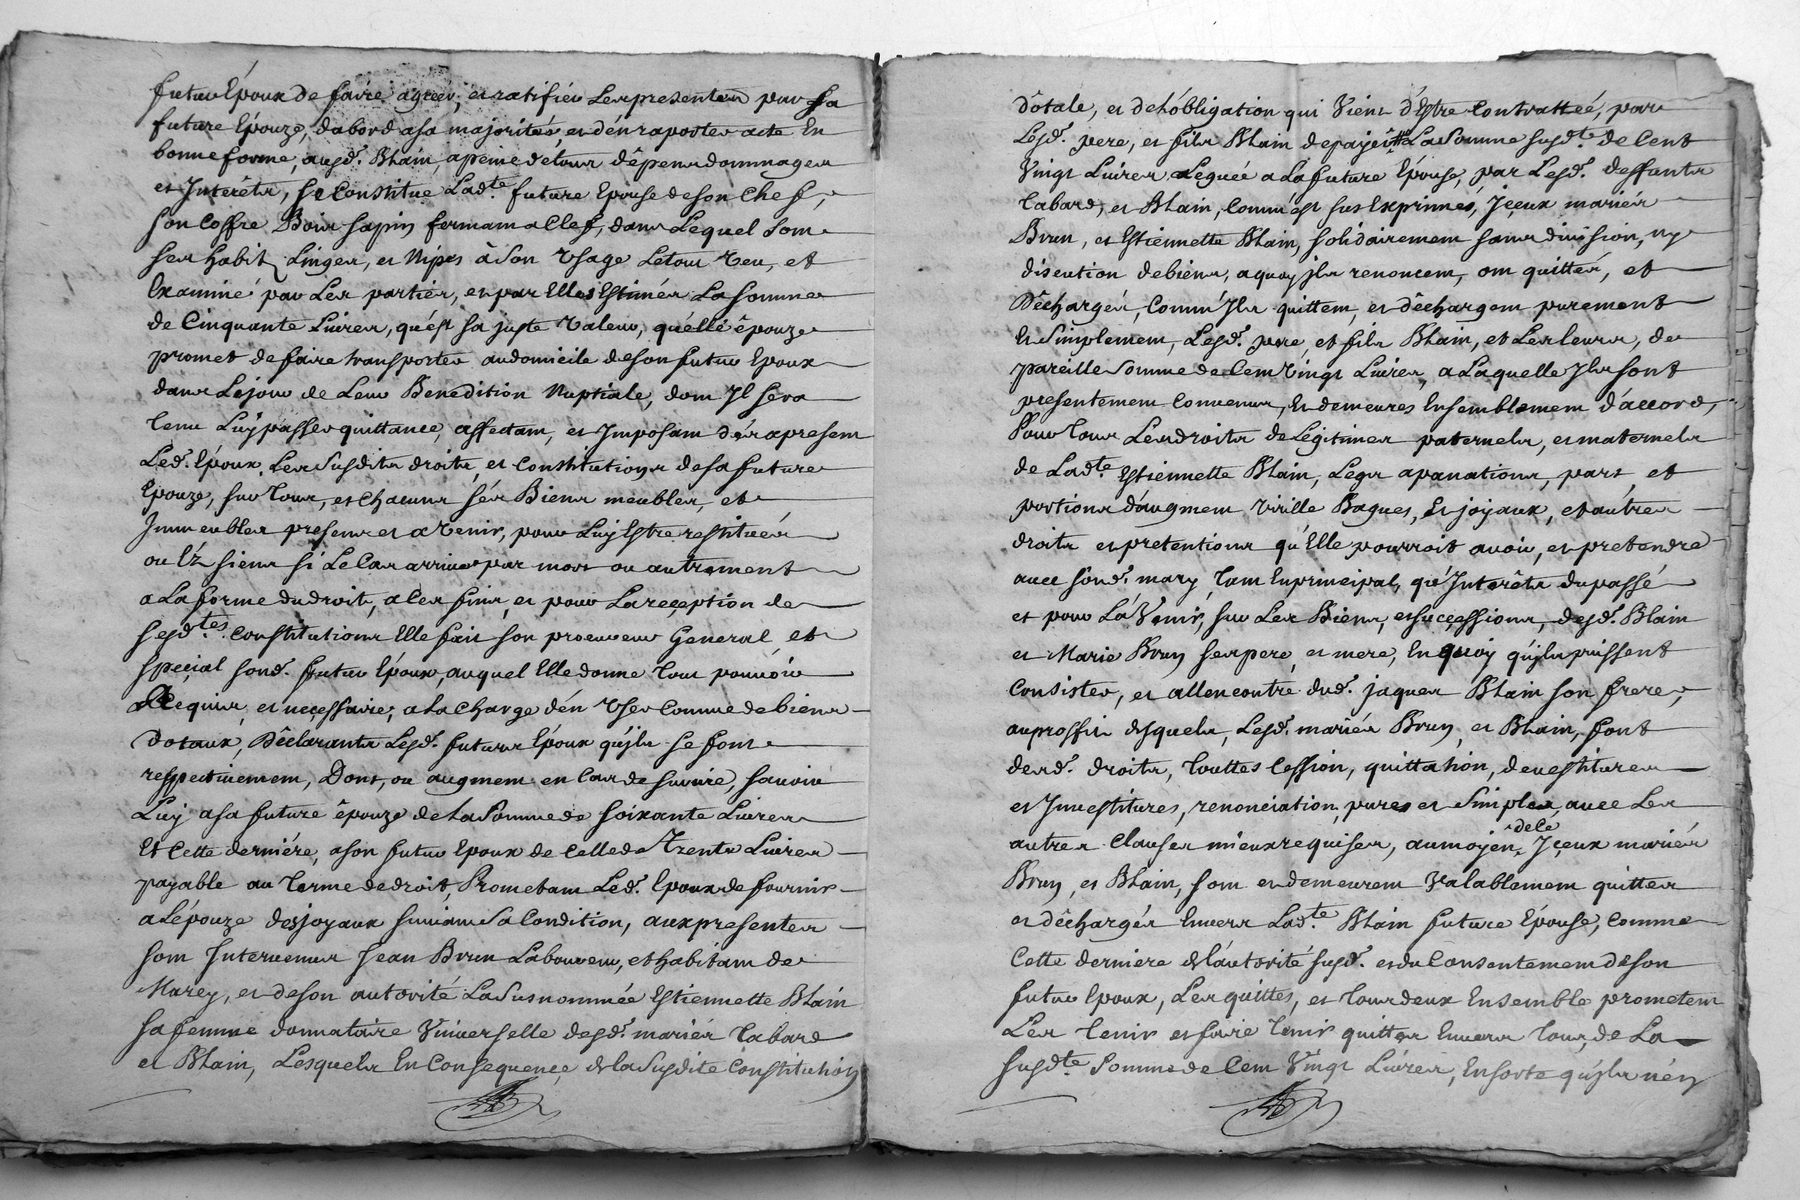 futur Époux de faire agréer, et ratifier les presentes par sa
future Épouze, dabord asa majorité, et dén raporter acte En
bonne forme, ausd. Blain, apeine detous dêpens dommages
et Interêts, se Constitue Ladte. future Epouse de son Chef,
son Coffre Bois sapin fermant aClef, dans Lequel sont
ses habits Linges, et Nipes à son Usage Letout Veu, et
Examiné par Les parties, et par Elles Estimés La somme
de Cinquante Livres, qu'est sa juste Valeur, quélle êpouze
promet de faire transporter audomicile deson futur Epoux
dans Lejour de Leur Benediction Nuptiale, dont Jl sera
tenu Luy passer quittance, affectant, et Imposant dés apresent
Led. Époux Les susdits droits, et Constitutions desa future
Épouze, sur tous, et Chacuns sés Biens meubles, et
Immeubles presens et aVenir, pour Luy Estre restitués
ou Éz siens si Le Cas arrive par mort ou autrement
a La forme dudroit, a Ces fins, et pour La reçeption de
sesdtes. Constitutions Elle fait son procureur General, et
speçial sond. futur Époux, auquel Elle donne tout pouvoir
Requis, et neçessaire, a La Charge dén User Comme de biens
dotaux, Dêclarants Lesd. futurs Époux qu'jls se font
respectivement, Dont, ou augment en Cas de survie, savoir
Luy a sa future êpouze de La Somme de soixante Livres
Et Cette derniére, a son futur Epoux de Celle de Trente Livres
payable au terme de droit, Prometant Led. Epoux de fournir
a Lépouze des joyaux suivant sa Condition, aux presentes
sont Intervenus Jean Brun Laboureur, et habitant de
Marey, et de son autorité La susnommée Estiennette Blain
sa femme donnataire Universelle desd. mariés Cabard
et Blain, Lesquels En Consequençe de la Susdite Constitution
dôtale, et de l'óbligation qui Vient d'Estre Contrattée, par
Lesd. pere, et fils Blain de payer La Somme susdte. de Cent
Vingt Livres Leguée a La future Épouse, par Lesd. deffunts
Cabard, et Blain, Comm'est sus Exprimés, Jçeux mariés
Brun, et Estiennette Blain, solidairement sans division, ny
discution de biens, a quoy jls renoncent, ont quittés, et
Dêchargés, Comm'Jls quittent, et dêchargent purement
Et Simplement, Lesd. pere, et fils Blain, et Les Leurs, de
pareille Somme de Cent Vingt Livres, a Laquelle Jls sont
presentement Convenus, Et demeurés Ensemblement d'accord,
Pour tous Les droits de Légitimes paternels, et maternels
de Ladte. Estiennette Blain, Legs apanations, part, et
portions d'augment Virille Bagues, Et joyaux, et autres
droits et pretentions qu'Elle pourroit avoir, et pretendre
avec sond. mary, tant En principal, qu'Interêts du passé
et pour Lá Venir, sur Les Biens, et suçessions, desd. Blain
et Marie Brun ses pere, et mere, En quoy qu'jls puissent
Consister, et allencontre dud. jaques Blain son frere,
au proffit desquels, Lesd. mariés Brun, et Blain, font
desd. droits, touttes Cession, quittation, devestitures
et Investitures, renonciation pures et simples, avec Les
autres Clauses mieux requises, au moyen ^de Ce Jçeux mariés
Brun, et Blain, sont et demeurent Valablement quittes
et dêchargés Envers Ladte. Blain future Épouse, Comme
Cette derniere de l'autorité susd. et du Consentement de son
futur Epoux, Les quittes, et tous deux Ensemble prometent
Les tenir et faire tenir quittes Envers tous, de La
susdte. Somme de Cent Vingt Livres, En sorte qu'jls n'én